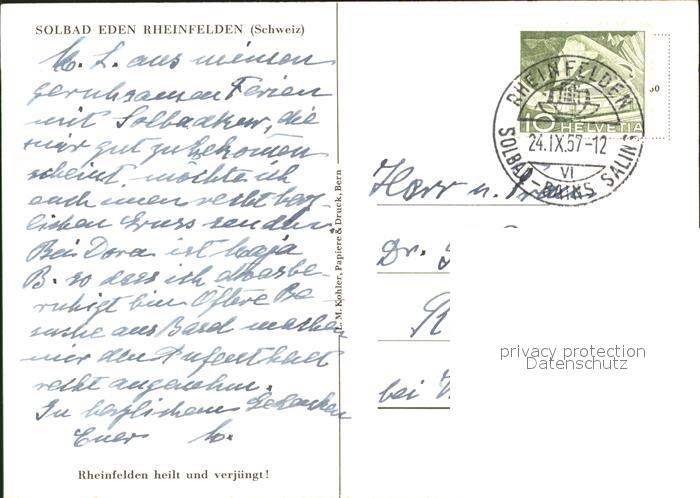 SOLBAD EDEN RHEINFELDEN (Schweiz)
M. L. aus meinen
geruhsamen Ferien
mit Solbadkur, die
mir gut zu bekommen
scheint, möchte ich
euch einen recht herz-
lichen Gruss senden
Bei Dora ist Maja
B. so dass ich etwas be-
ruhigt bin. Öftere Be
suche aus Basel machen
mir den Aufenthalt
recht angenehm.
In herzlichem Gedenken
Euer
Rheinfelden heilt und verjüngt!
L. M. Kohler, Papiere & Druck, Bern
RHEINFELDEN
10 HELVETIA
24.IX.57-12
VI
SOLBAD-BAINS SALINS
50
Herr u.
Dr.
bei
privacy protection
Datenschutz